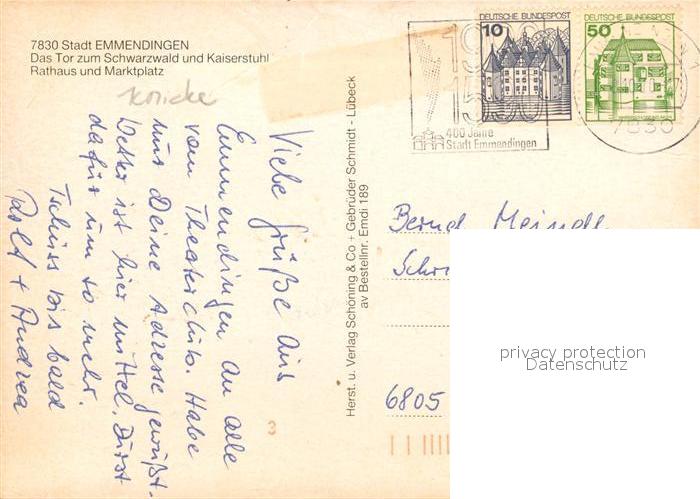 7830 Stadt EMMENDINGEN
Das Tor zum Schwarzwald und Kaiserstuhl
Rathaus und Marktplatz
Viele Grüße aus
Emmendingen an alle
vom Theaterclub. Habe
nur Deine Adresse gewußt.
Wetter ist hier mittel, Durst
dafür um so mehr.
Tschüss bis bald
Rolf + Andrea
Herst. u. Verlag Schöning & Co + Gebrüder Schmidt - Lübeck
av Bestellnr. Emdi 189
DEUTSCHE BUNDESPOST
10
DEUTSCHE BUNDESPOST
50
1590
400 Jahre
Stadt Emmendingen
7830
Bernd Meindl
6805
3
privacy protection
Datenschutz